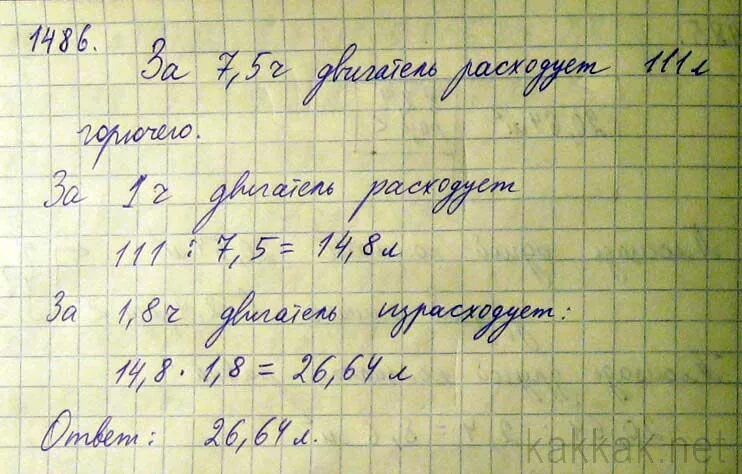 1486.
За 7,5 ч двигатель расходует 111 л
горючего.
За 1 ч двигатель расходует
111 : 7,5 = 14,8 л
За 1,8 ч двигатель израсходует:
14,8 · 1,8 = 26,64 л
Ответ: 26,64 л.
kakkak.net